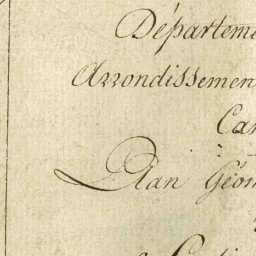 Départeme
Arrondissemen
Can
Plan Géom